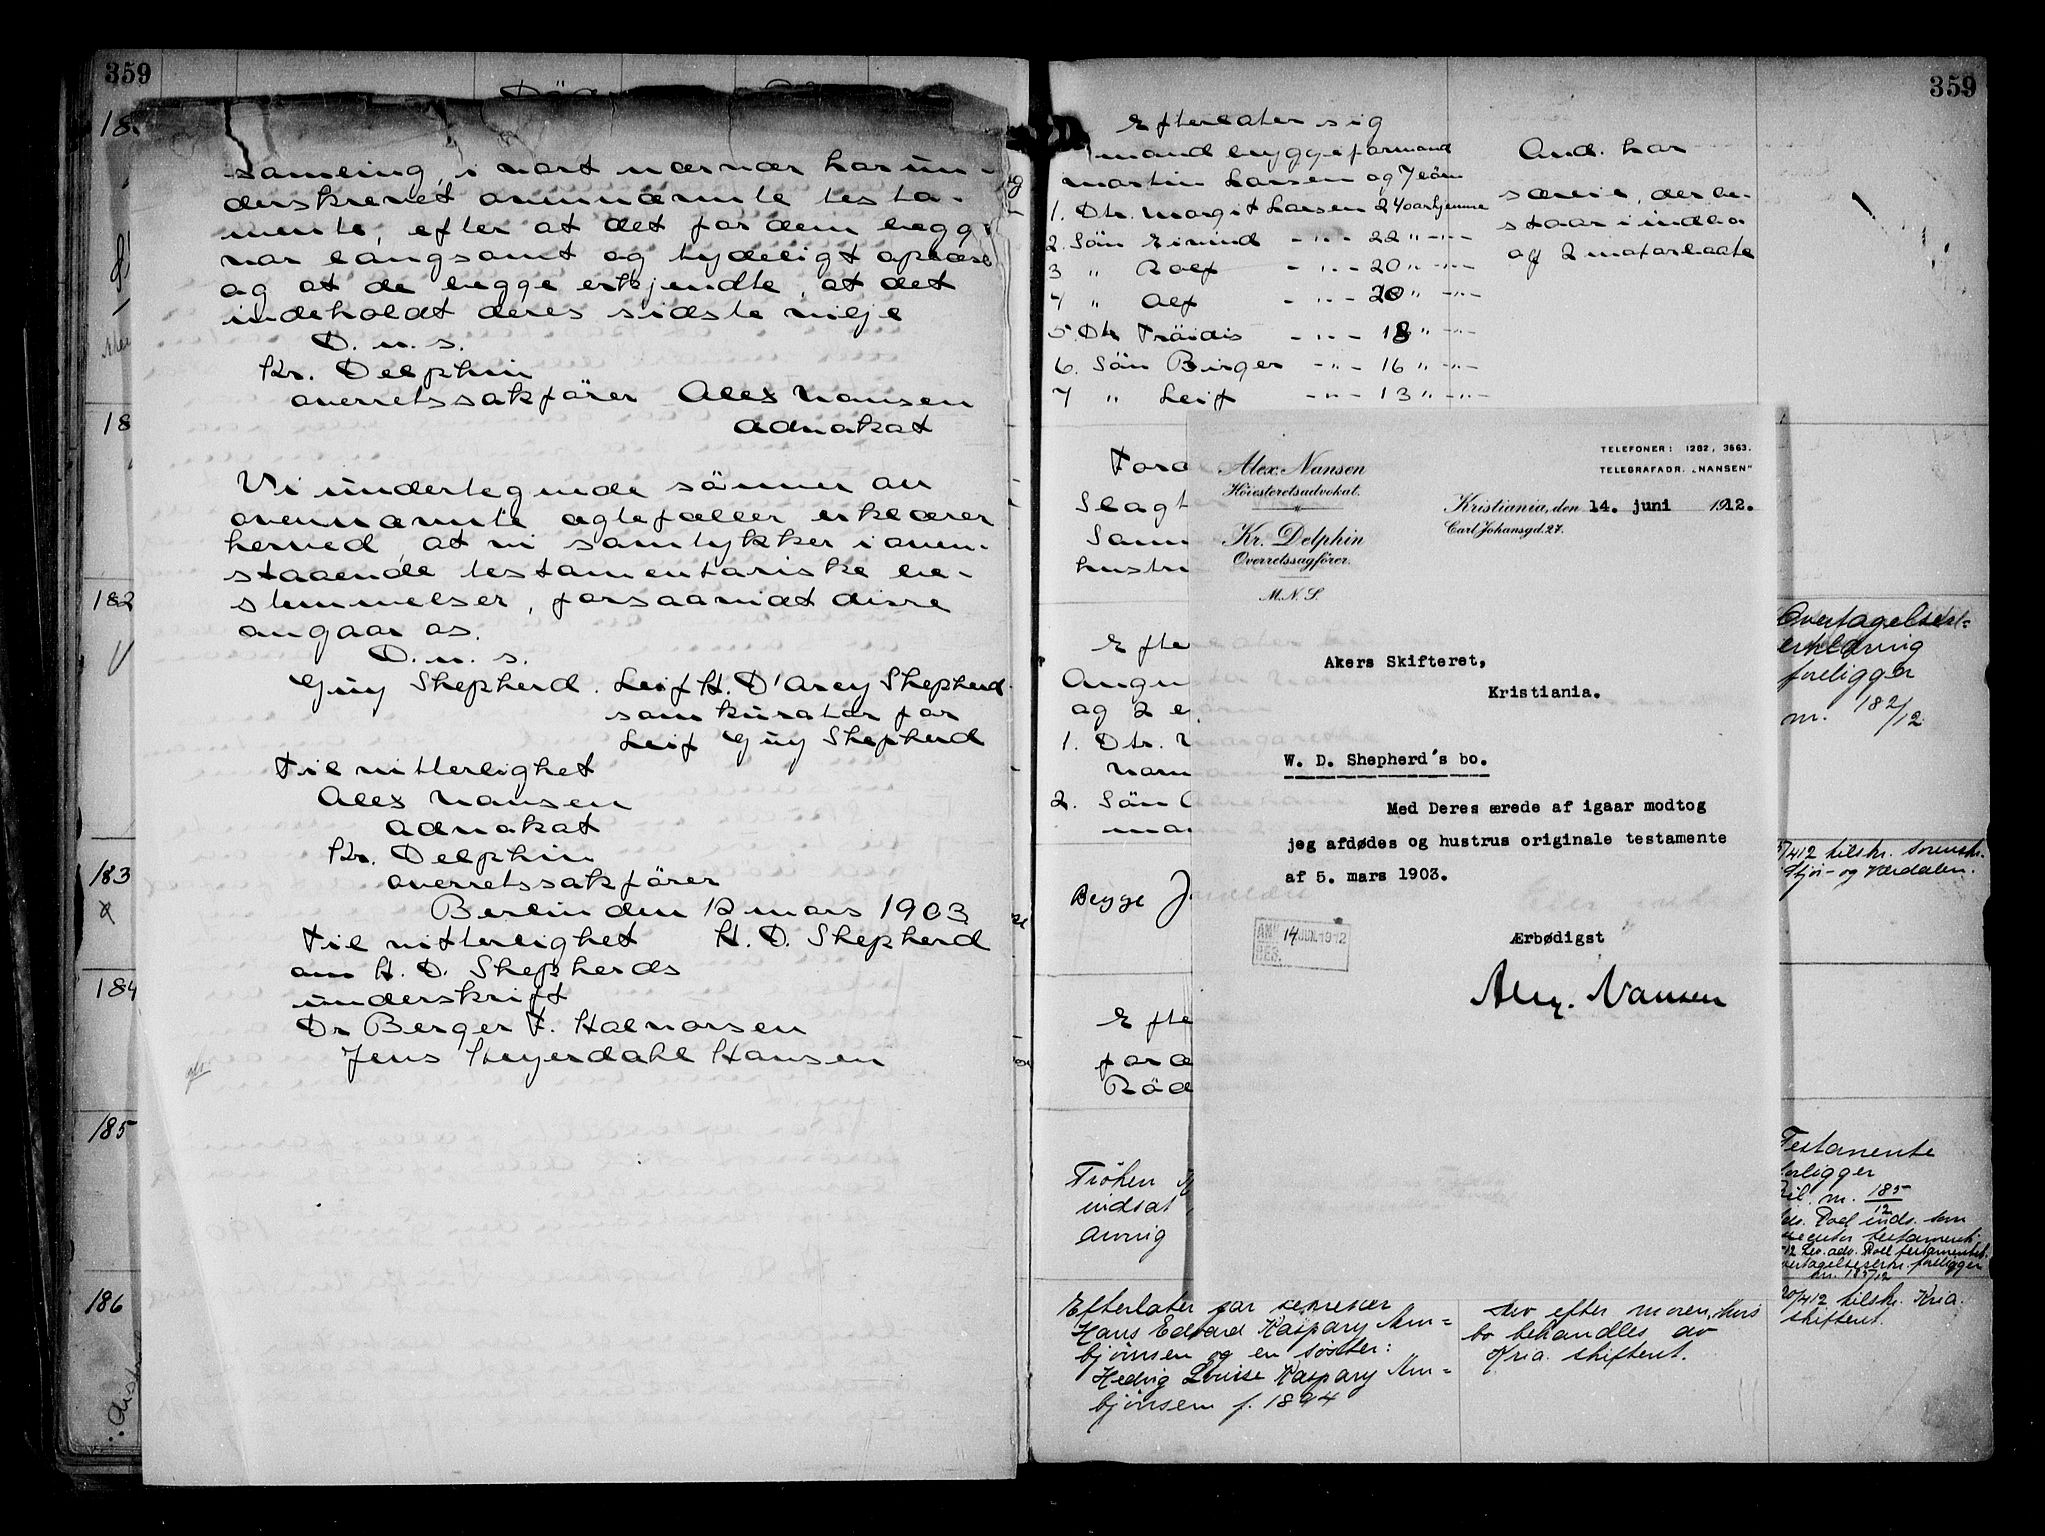 359
18
samling, i vort nærvær har un-
derskrevet ovennævnte testa-
mente, efter at det for dem begge
var langsomt og tydeligt oplæst
og at de begge erkjendte, at det
indeholdt deres sidste vilje
D. u. s.
Kr. Delphin
overretssakfører Alex Nansen
advokat
Vi undertegnede sønner av
ovennævnte ægtefæller erklærer
herved, at vi samtykker i oven-
staaende testamentariske be-
stemmelser, forsaavidt disse
angaar os.
D. u. s.
Guy Shepherd. Leif H. D'Arcy Shepherd.
som kurator for
Leif Guy Shepherd
Til vitterlighet
Alex Nansen
advokat
Kr. Delphin
overretssakfører
Berlin den 12 mars 1903
Til vitterlighet H. D. Shepherd
om H. D. Shepherds
underskrift
Dr Berger F. Halvorsen
Jens Heyerdahl Hansen
18
182
183
184
185
186
359
Efterlater sig
mand byggeformand
Martin Larsen og 7 børn
1. Dtr. Margit Larsen 24 aar hjemme
2. Søn Eivind - " - 22 " - " -
3 " Rolf - " - 20 " - " -
4 " Alf - " - 20 " - " -
5. Dtr Frøidis - " - 18 " - " -
6. Søn Birger - " - 16 " - " -
7 " Leif - " - 13 " - " -
And. har
særeie, der be-
staar i indbo
og 2 motorbaate
Slagt
Sann
hustru
Alex. Nansen
Høiesteretsadvokat.
Kr. Delphin
Overretssagfører.
M. N. S.
TELEFONER: 1282, 3663.
TELEGRAFADR. „NANSEN"
Kristiania, den 14. juni 1912.
Carl Johansgd. 27.
Akers Skifteret,
Kristiania.
W. D. Shepherd's bo.
Med Deres ærede af igaar modtog
jeg afdødes og hustrus originale testamente
af 5. mars 1903.
14 JUN. 1912
Ærbødigst
Alex. Nansen
Efte
Augu
og 2 
1. Dtr.
2. Søn
Begge
Efte
Rød
Frøken
indsat
Overtagelsest=
erklæring
foreligger
nr. 182/12
/412 tilskr. Sorenskr.
Stjør- og Værdalen.
Testamente
foreligger
Bil. nr. 185/12
20/412 tilskr. Kria.
skifteret.
Efterlater
Hans Edvard Kaspary Arn=
bjørnsen og en søster:
Hedvig Louise Kaspary Arn=
bjørnsen f. 1894
Arv efter moren, hvis
bo behandles av
Kria. skifteret.